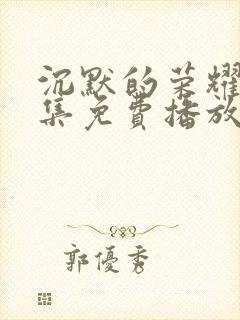 沉默的荣耀
集免费播放
郭優秀